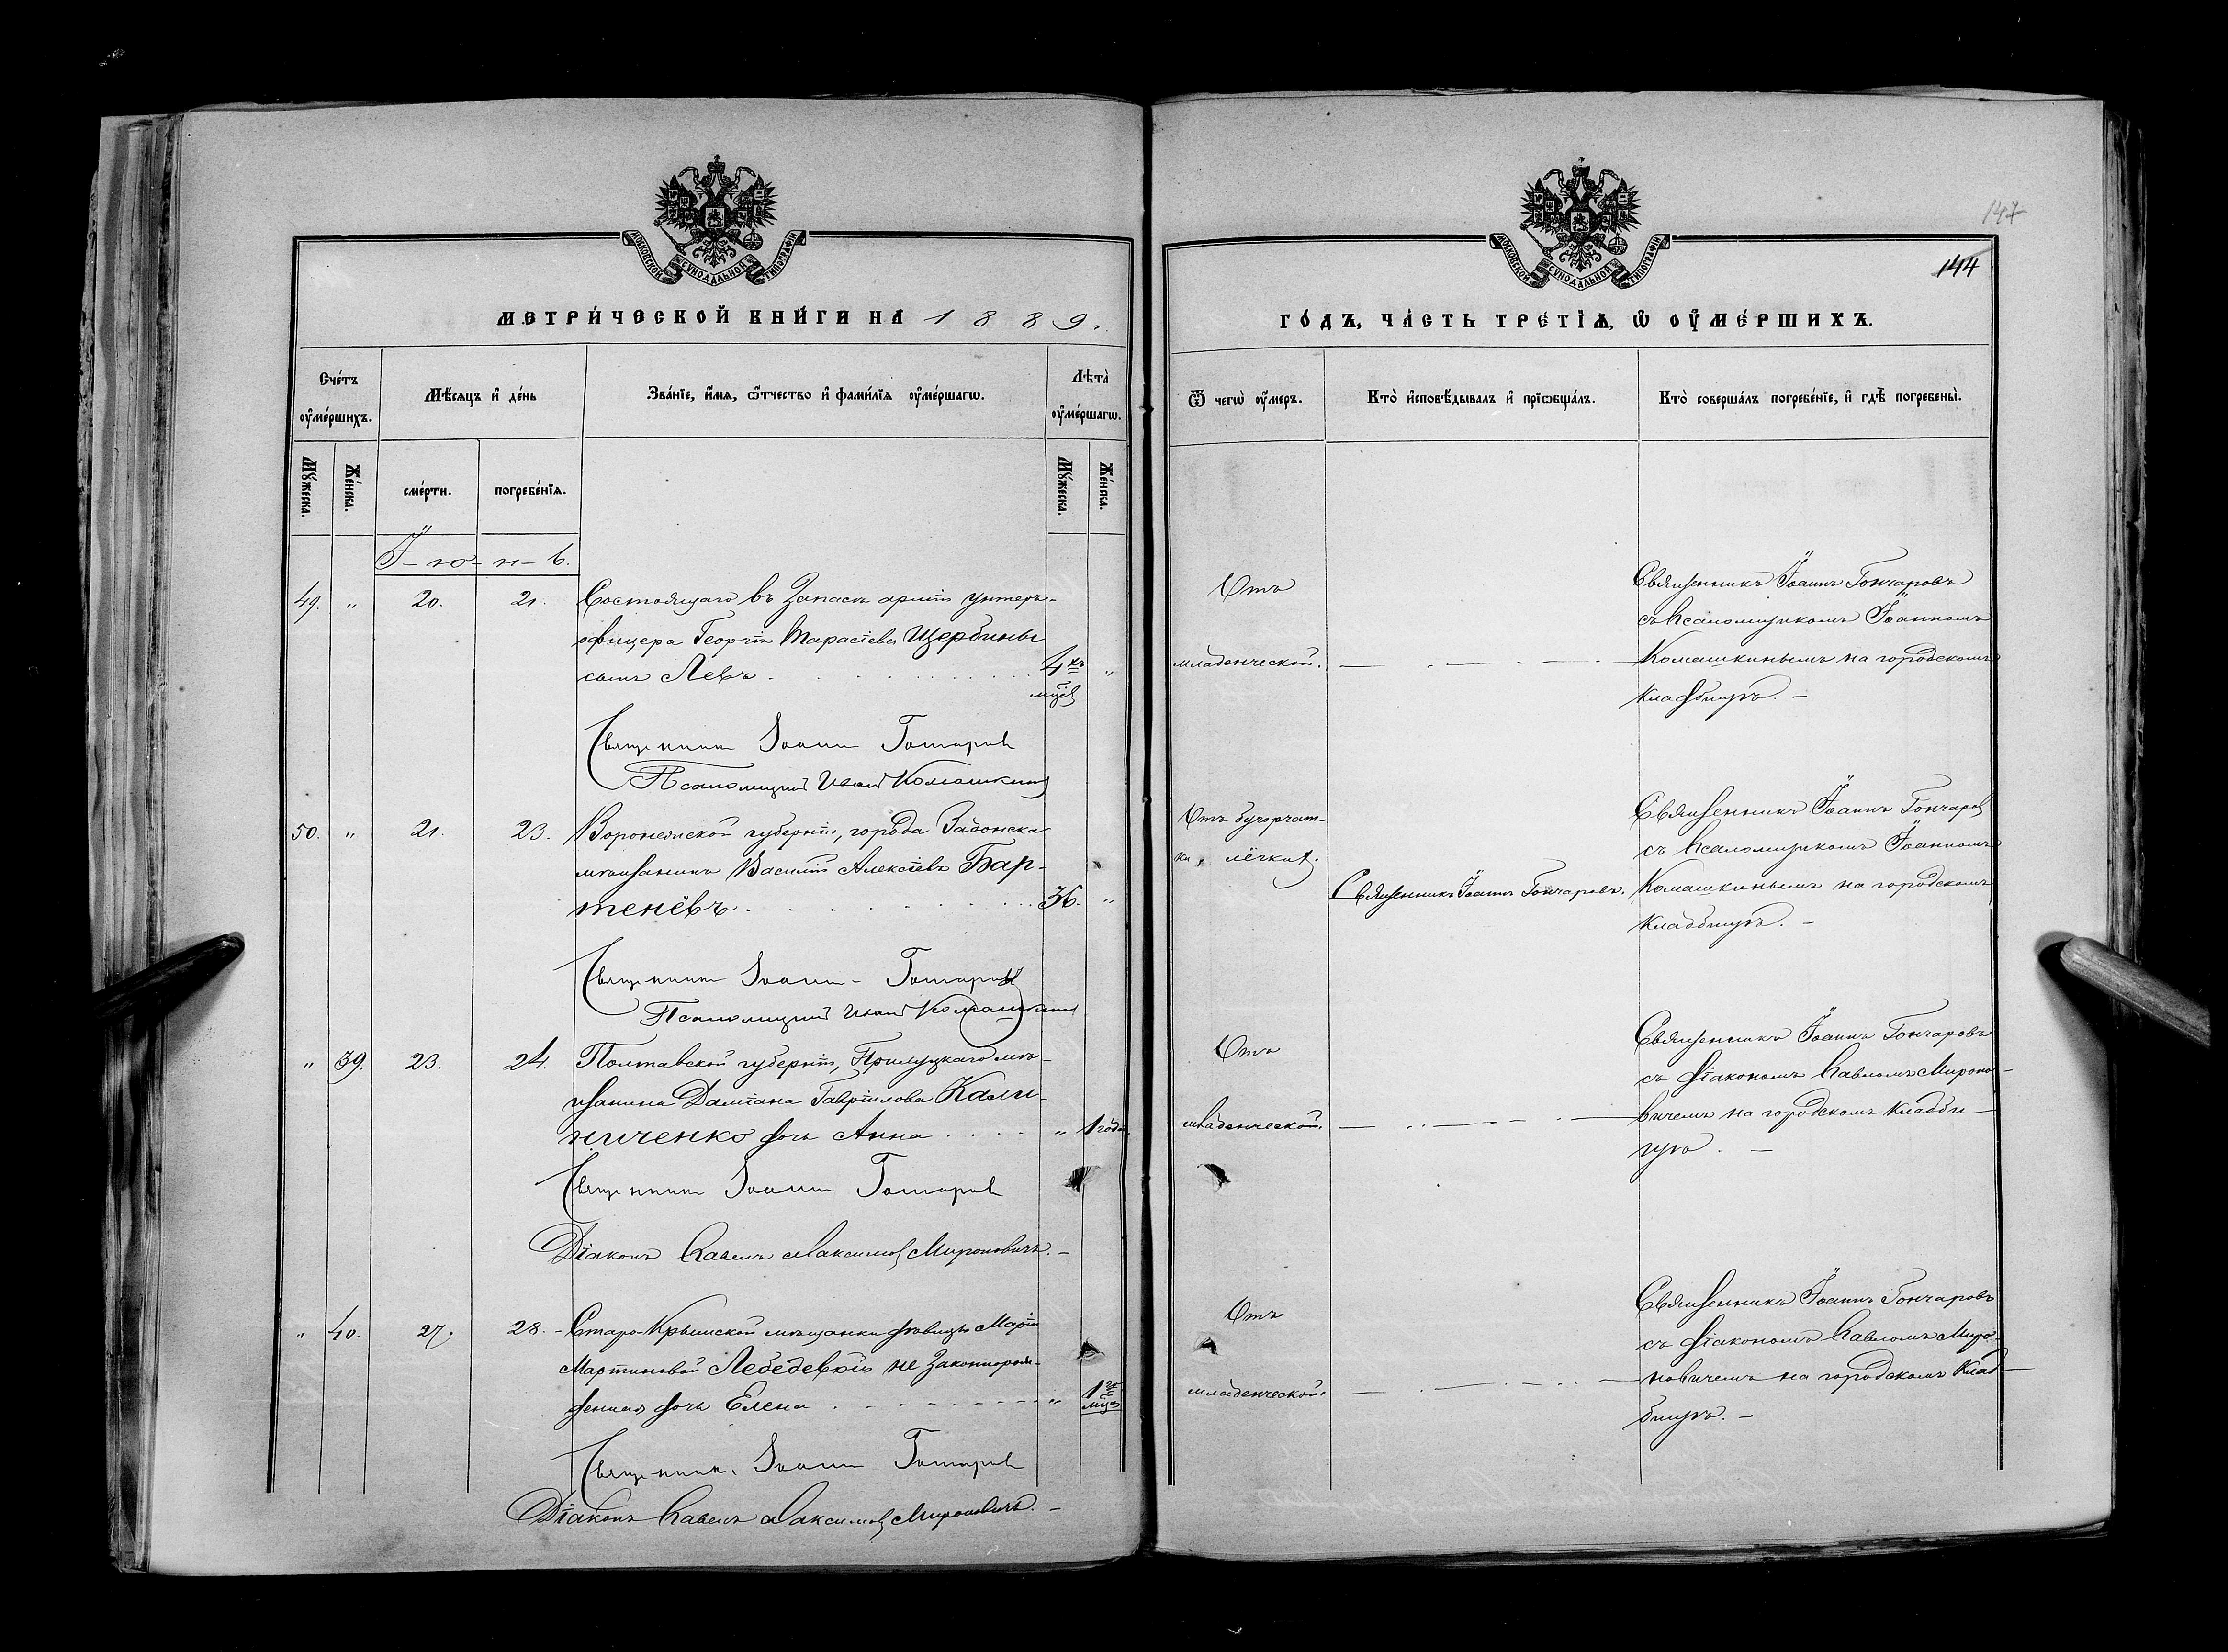 МОСКОВСКОЙ СѴНОДАЛЬНОЙ ТИПОГРАФІИ
МЕТРИ́ЧЕСКОЙ КНИ́ГИ НА 1889.
Сче́тъ ᲂу҆ме́ршихъ.
Мѣ́сяцъ и҆ де́нь
Зва́нїе, и҆́мѧ, ѻ҆́тчество и҆ фами́лїѧ ᲂу҆ме́ршагѡ.
Лѣта̀ ᲂу҆ме́ршагѡ.
Мꙋ́жеска.
Же́нска.
сме́рти.
погребе́нїѧ.
Мꙋ́жеска.
Же́нска.
І-ю-н-ь.
49. " 20. 21. Состоящаго въ Запасѣ арміи унтеръ-
офицера Георгія Тарасіева Щербины
сынъ Левъ . . . 4хъ "
мцев
Священникъ Іоаннъ Гончаровъ
Псаломщикъ Иванъ Комашкинъ
50. " 21. 23. Воронежской губерніи, города Задонска
мѣщанинъ Василій Алексіевъ Бар-
теневъ . . . 36. "
Священникъ Іоаннъ Гончаровъ
Псаломщикъ Иванъ Комашкинъ
" 39. 23. 24. Полтавской губерніи, Прилуцкаго мѣ-
щанина Даміана Гавріилова Кали-
ниченко дочь Анна . . . " 1 года
Священникъ Іоаннъ Гончаровъ
Діаконъ Павелъ Максимов Мироновичъ. –
" 40. 27. 28. Старо-Крымской мѣщанки дѣвицы Маріи
Мартиновой Лебедевой не законнорож-
денная дочь Елена . . . "
мцев
Священникъ Іоаннъ Гончаровъ
Діаконъ Павелъ Максимов Мироновичъ. –
147
144
МОСКОВСКОЙ СѴНОДАЛЬНОЙ ТИПОГРАФІИ
ГО́ДЪ, ЧА́СТЬ ТРЕТЇѦ, Ѡ҆ ᲂУ҆МЕ́РШИХЪ.
Ѿ чегѡ̀ ᲂу҆́меръ.
Кто̀ и҆сповѣ́дывалъ и҆ прїѡбща́лъ.
Кто̀ соверша́лъ погребе́нїе, и҆ гдѣ̀ погребены̀.
Отъ
младенческой. — . — . —
Священникъ Іоаннъ Гончаровъ
съ Псаломщикомъ Іоанномъ
Комашкинымъ на городскомъ
кладбищѣ. –
Отъ бугорчат-
ки, лёгкихъ.
Священникъ Іоаннъ Гончаровъ.
Священникъ Іоаннъ Гончаров
съ Псаломщикомъ Іоанномъ
Комашкинымъ на городскомъ
кладбищѣ. –
Отъ
младенческой. — . — . —
Священникъ Іоаннъ Гончаровъ
съ діакономъ Павломъ Мироно-
вичемъ на городскомъ кладби-
щѣ. –
Отъ
младенческой. — . — . —
Священникъ Іоаннъ Гончаровъ
съ діакономъ Павломъ Миро-
новичемъ на городскомъ клад-
бищѣ. –